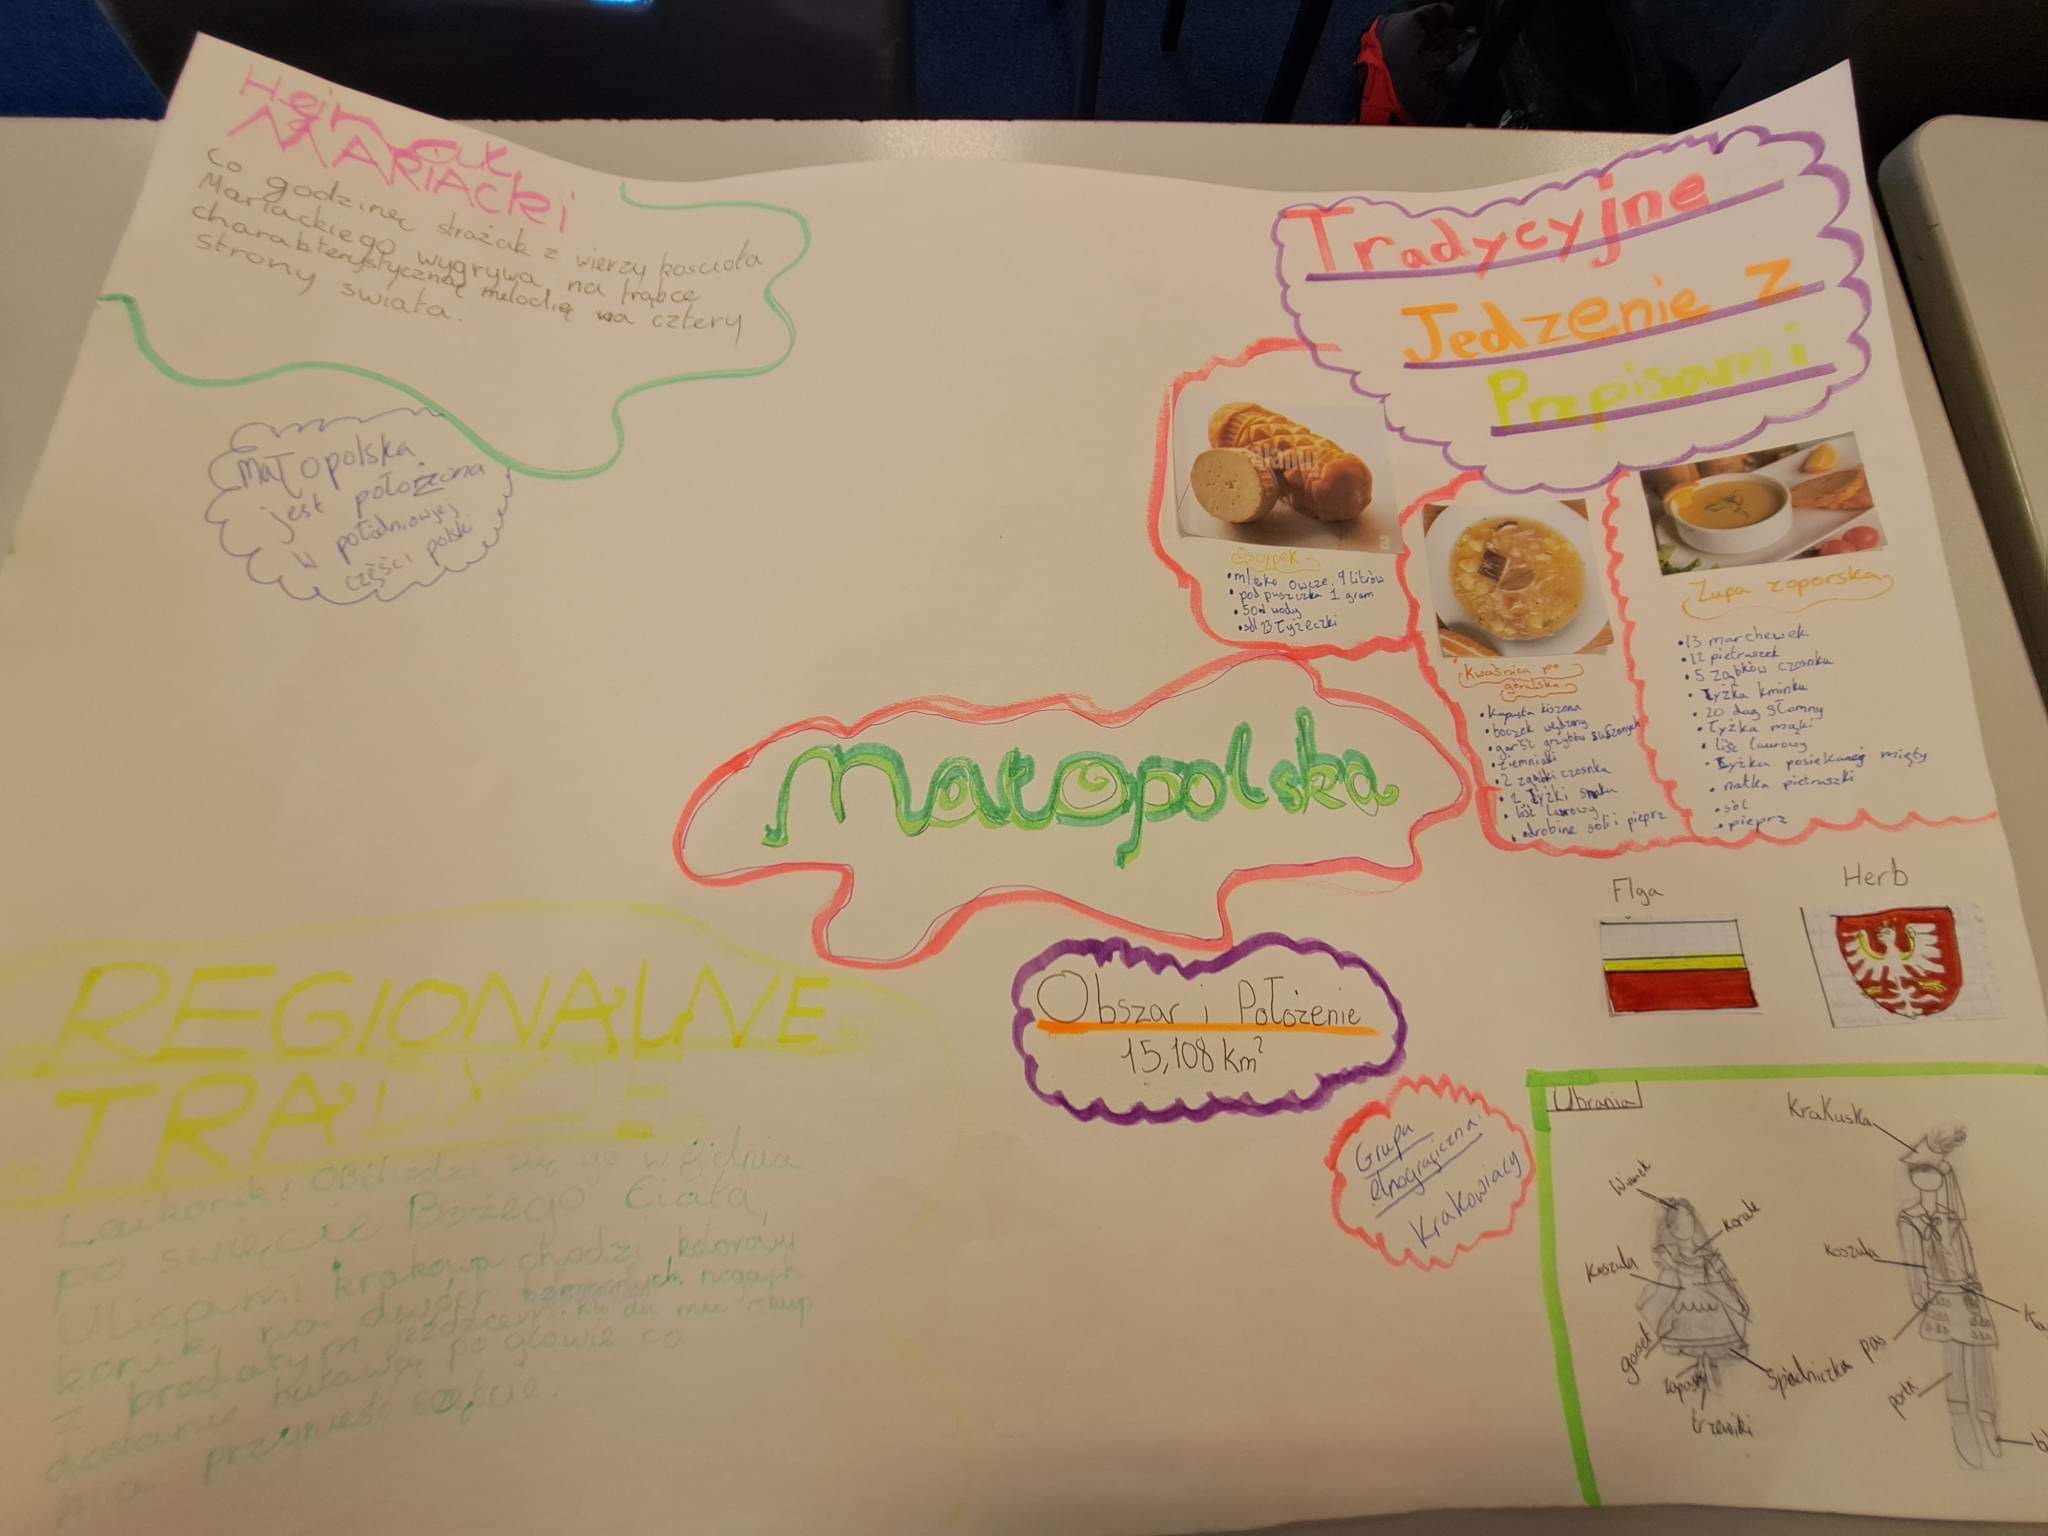 Hejnał
MARIACKi
Co godzinę strażak z wierzy kościoła
Mariackiego wygrywa na trąbce
charakterystyczną melodię na cztery
strony świata.
Małopolska
jest położona
w połódniowjej
części polski
Tradycyjne
Jedzenie z
Przpisami
Oscypek
• mleko owcze 9 litrów
• podpuszczka 1 gram
• 50ml wody
• sól 23 łyżeczki
Kwaśnica po
góralska
• Kapusta kiszona
• boczek wędzony
• garść grzybów suszonych
• ziemniaki
• 2 ząbki czosnku
• 2 łyżki
• liść laurowy
• odrobine soli i pieprz
Zupa zoporska
• 13 marchewek
• 12 pietruszek
• 5 ząbków czosnku
• Łyżka kminku
• 20 dag słomny
• łyżka mąki
• liść laurowy
• Łyżka posiekanej mięty
• natka pietruszki
• sól
• pieprz
Małopolska
Flga
Herb
Obszar i Położenie
15,108 km²
Grupa
etnograficzna:
Krakowiacy
Ubrania
Krakuska
Wianek
Korale
Koszula
Koszula
gorset
zapaska
Spódniczka
trzewiki
pas
portki
REGIONALNE
TRADYCJE
Laikonik: Obchodzi się go w 8 dnia
po święcie Bożego Ciała,
Ulicami krakowa chodzi kolorowy
konik na dwóch nogach
z brodatym jeźdźcem. kto da mu okup
dostanie buławą po głowie co
ma przynieść sczęście.